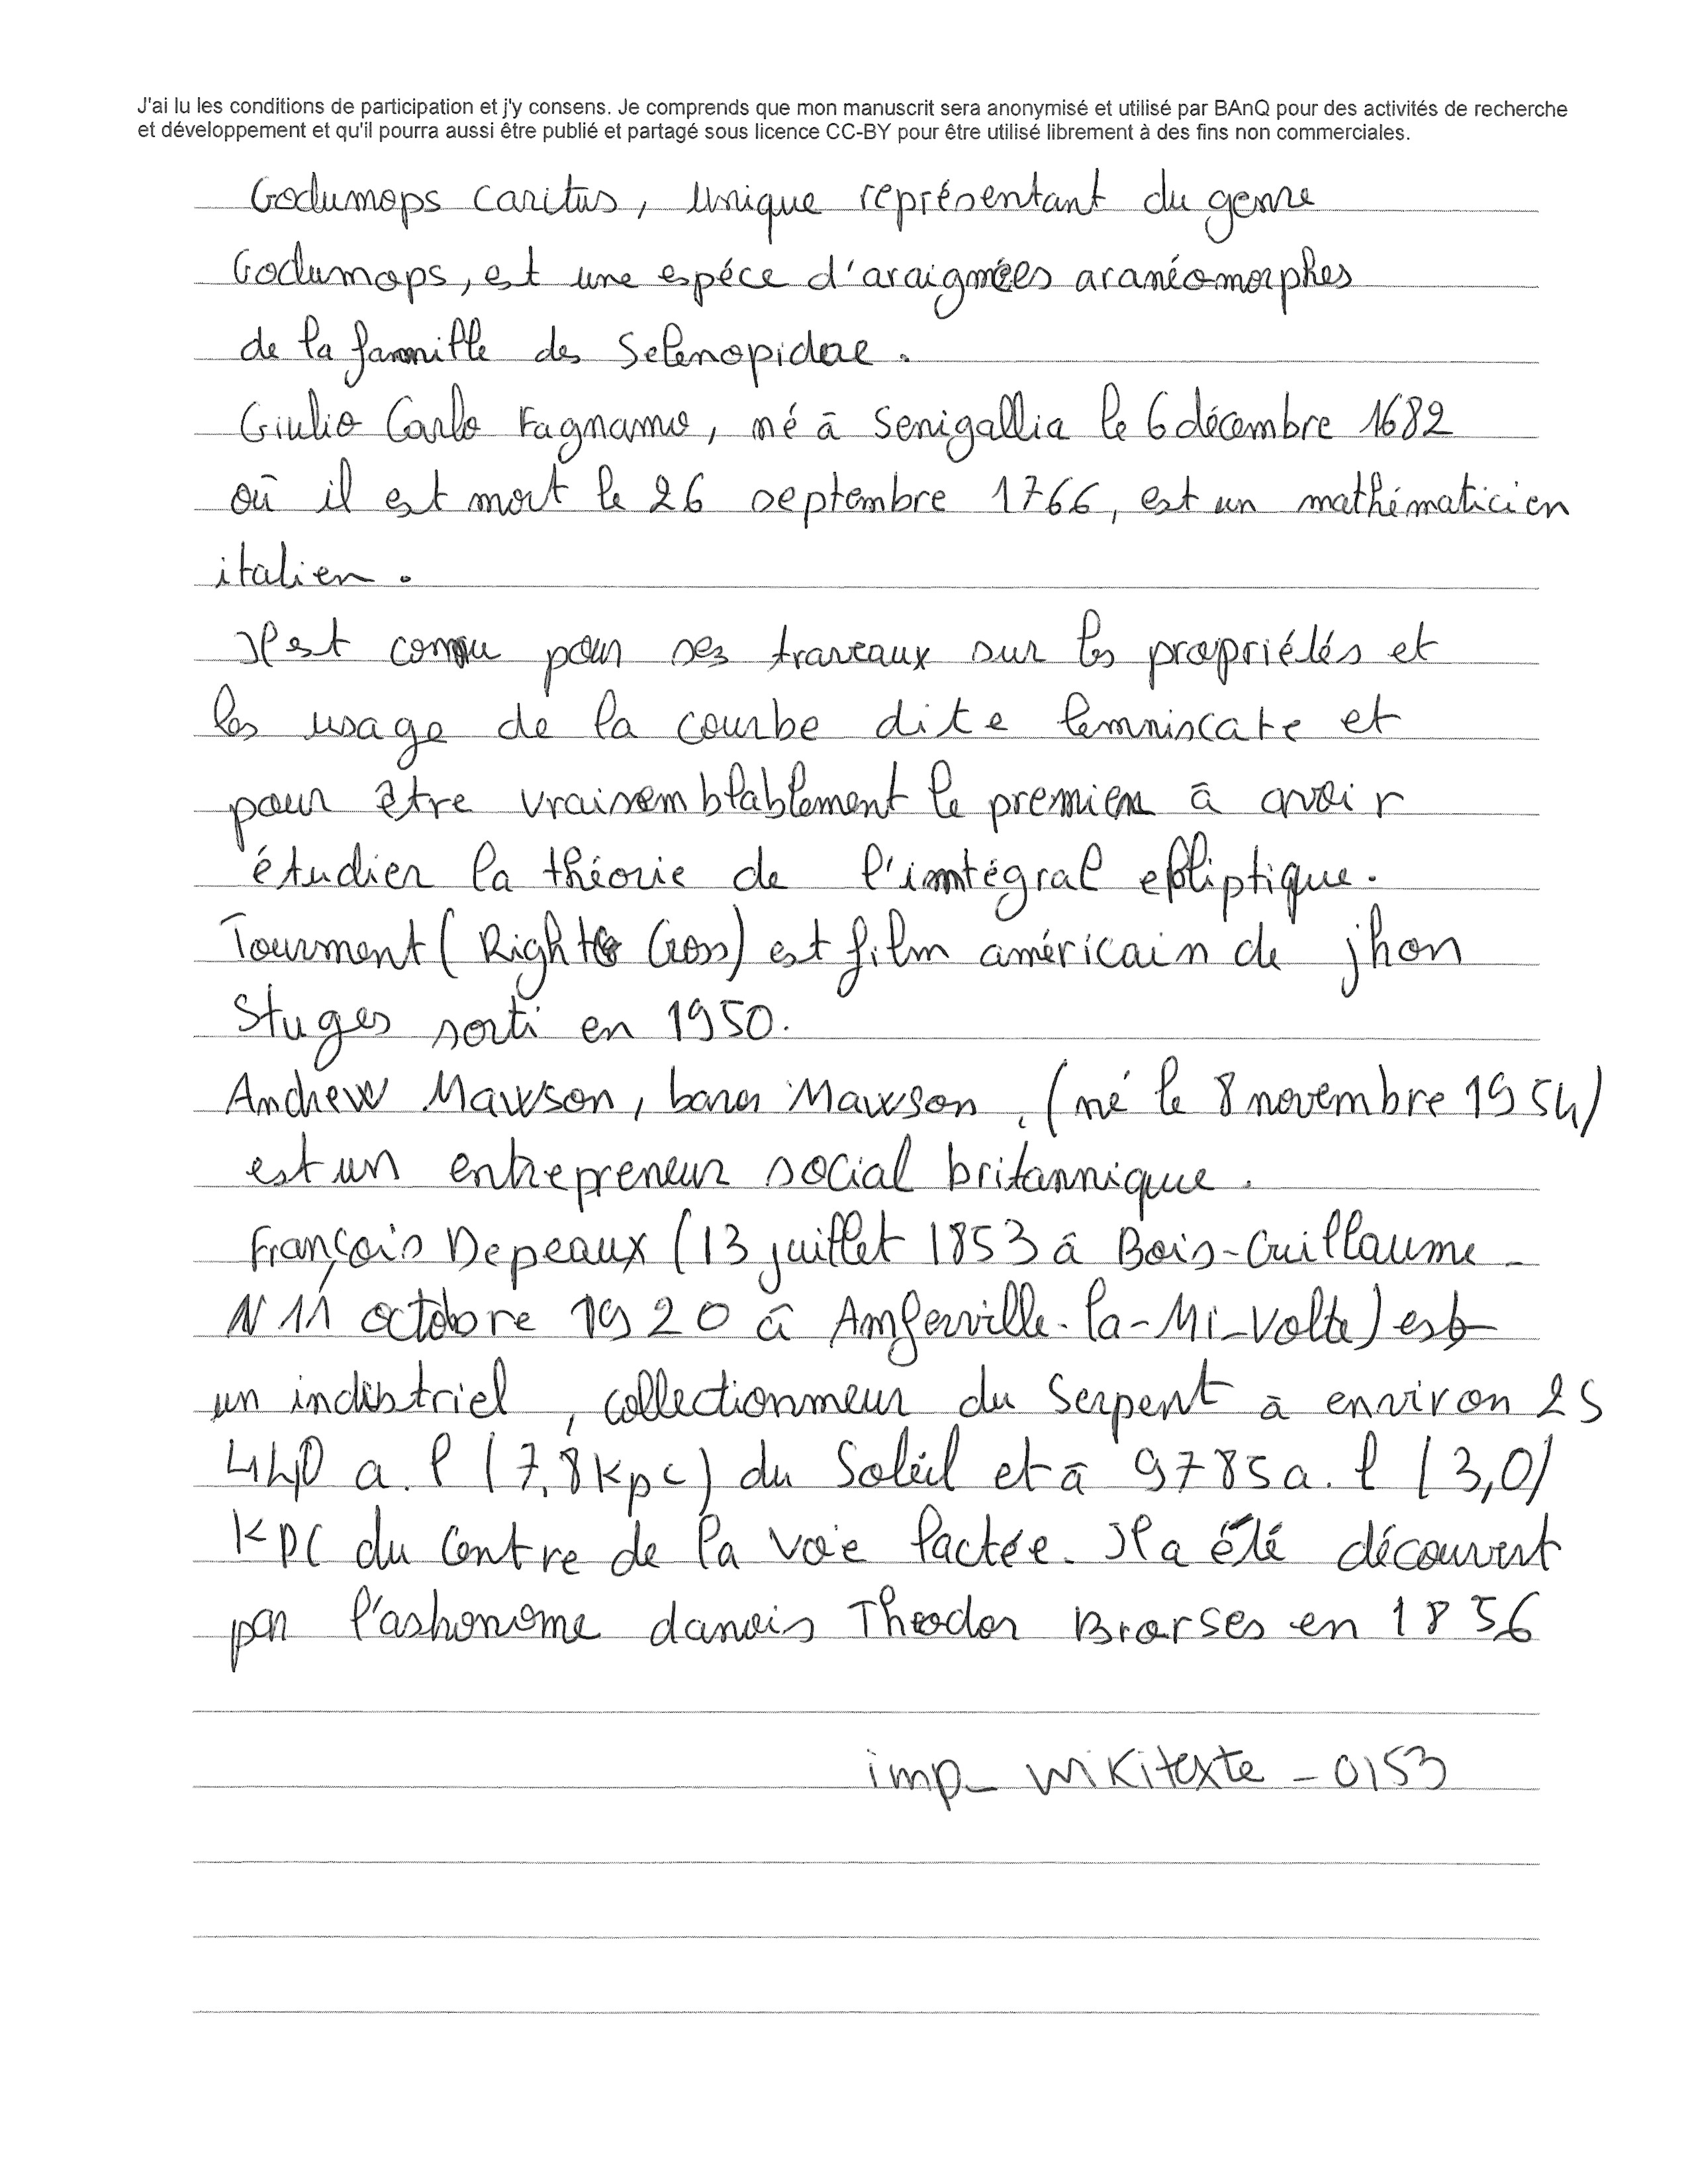 J'ai lu les conditions de participation et j'y consens. Je comprends que mon manuscrit sera anonymisé et utilisé par BAnQ pour des activités de recherche
et développement et qu'il pourra aussi être publié et partagé sous licence CC-BY pour être utilisé librement à des fins non commerciales.
Godumops caritus, unique représentant du genre
Godumops, est une espéce d'araignées aranéomorphes
de la famille des Selenopidae.
Giulio Carlo Fagnano, né à Senigallia le 6 décembre 1682
où il est mort le 26 septembre 1766, est un mathématicien
italien.
Il est connu pour ses traveaux sur les propriélés et
les usage de la courbe dite lemniscate et
pour être vraisemblablement le premier à avoir
étudier la théorie de l'intégral elliptique.
Tourment (Right Cross) est film américain de jhon
Stuges sorti en 1950.
Andrew Mawson, baron Mawson, (né le 8 novembre 1954)
est un entrepreneur social britannique.
François Depeaux (13 juillet 1853 à Bois-Guillaume -
11 octobre 1920 à Amferville-la-Mi-Volte) est
un industriel, collectionneur du Serpent à environ 25
440 a. l (7,8 kpc) du Soleil et à 9785 a. l (3,0)
KPC du Centre de la voie lactée. Il a élé découvert
par l'astronome danois Theodor Brorses en 1856
imp_ wikitexte - 0153